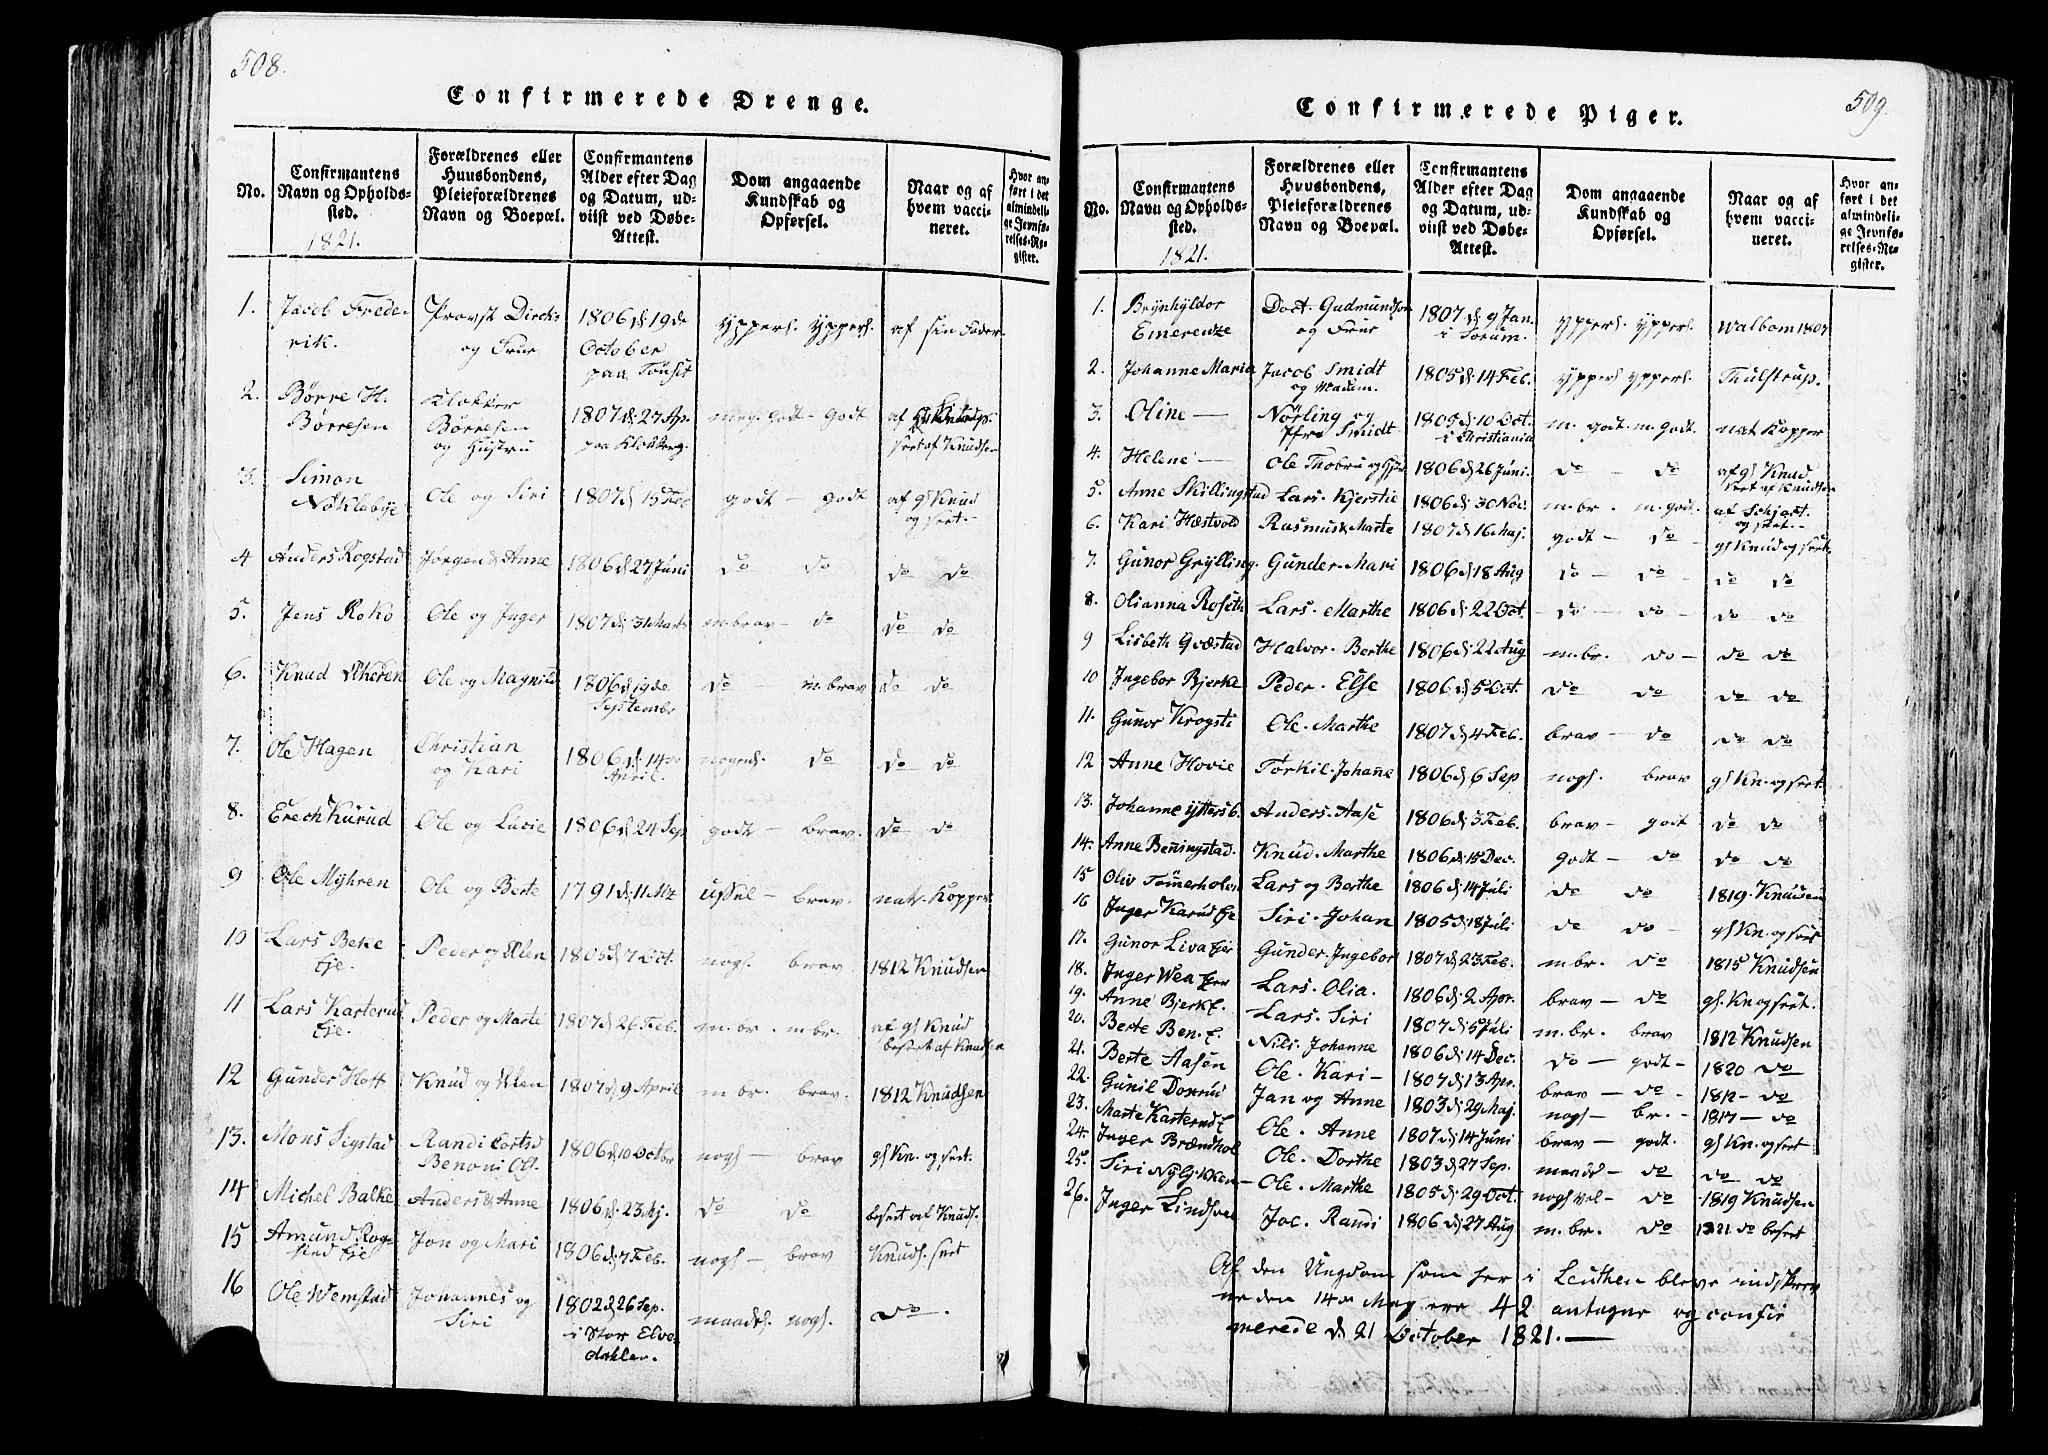 508.
Confirmerede Drenge.
No.
Confirmantens Navn og Opholdssted.
Forældrenes eller Huusbondens, Pleieforældrenes Navn og Boepæl.
Confirmantens Alder efter Dag og Datum, udviist ved Døbe-Attest.
Dom angaaende Kundskab og Opførsel.
Naar og af hvem vaccineret.
Hvor anført i det almindelige Jevnførelses-Register.
1821.
1. Jacob Frederik. Provst Dircks og Frue 1806 d. 19de October paa Tönset yppers. yppers. af sin Fader
2. Børre H. Børresen Klokker Børresen og Hustru 1807 d. 27 Ap. paa Klokkerg. meg. godt - godt af sert af Knudsen
3. Simon Nøklebye Ole og Siri 1807 d. 15 Feb godt - godt af gl Knud og sert.
4 Anders Rogstad Jørgen & Anne 1806 d. 27 Juni do do do do
5. Jens Roko Ole og Inger 1807 d. 31 Marts m. brav - do do do
6. Knud Ole og Magnild 1806 d. 19de Septembr do m. brav do do
7. Ole Hagen Christian og Kari 1806 d. 14de April. nogenl. do do do
8. Erech Kurud Ole og Lucie 1806 d. 24 Sep godt - brav. do do
9 Ole Myhren Ole og Berte 1791 d. 11 Mz ussel - brav. nat. Kopper
10 Lars Beke Eje. Peder og Olen 1805 d. 7 Oct. nogl. brav 1812 Knudsen
11 Lars Karterud Eje. Peder og Marte 1807 d. 26 Feb. m. br. m br. af gl Knud beseet af Knudsen
12 Gunder Hoff Knud og Olen 1807 d. 9 April m br. brav. 1812 Knudsen
13. Mons Sigstad Randi Benoni 1806 d. 10 Octbr nogl - brav gl Kn. og sert.
14 Michel Balke Anders & Anne 1806 d. 23 Mj. do do beseet af Knuds.
15 Amund Rogstad Eje Jon og Mari 1806 d. 7 Feb. nogl - brav Knuds. sert
16 Ole Wemstad Johannes og Siri 1802 d. 26 Sep. i Stor Elvedahlen. maadel. nogl. do.
509.
Confirmerede Piger.
No.
Confirmantens Navn og Opholdssted.
Forældrenes eller Huusbondens, Pleieforældrenes Navn og Boepæl.
Confirmantens Alder efter Dag og Datum, udviist ved Døbe-Attest.
Dom angaaende Kundskab og Opførsel.
Naar og af hvem vaccineret.
Hvor anført i det almindelige Jevnførelses-Register.
1821.
1. Brynhyldor Emerentze Doct. Gudmundson og Frue 1807 d. 9 Jan. i Sorum. yppers. yppers. Walbom 1807
2. Johanne Maria Jacob Smidt og Madam. 1805 d. 14 Feb. yppers yppers. Thulstrup.
3. Oline — Nørling og Jfru Smidt 1805 d. 10 Oct. i Christiania m. godt. m. godt. nat Kopper
4. Helene — Ole Thobru og 1806 d. 26 Juni. do - do af gl Knud sert af Knudsen
5. Anne Skillingstad Lars. Kjerstie 1806 d. 30 Nov. m. br. m. godt. af Schjøtt og sert.
6. Kari Hæstvold Rasmus & Marte 1807 d. 16 Maj. godt - do - gl Knud og sert.
7. Gunor Grylling. Gunder. Mari 1806 d. 18 Aug do - do - do do
8. Olianna Roseth Lars. Marthe 1806 d. 22 Oct - do - do - do do
9 Lisbeth Gvæstad Halvor. Berthe 1806 d. 22 Aug m. br. do - do do
10 Ingebor Bjerke Peder. Else 1806 d. 5 Oct. do do do do
11. Gunor Krogsti Ole. Marthe 1807 d. 4 Feb. brav - do do do
12 Anne Hovie Torkil. Johañe 1806 d. 6 Sep nogl. brav gl Kn. og sert.
13. Johanne yttersb. Anders. Aase 1806 d. 3 Feb. brav - godt do do
14. Anne Beningstad. Knud. Marthe 1806 d. 15 Dec. godt - do do do
15 Oliv Tømerholen Lars og Berthe 1806 d. 14 Juli do do 1819. Knudsen
16 Inger Karud Eje Siri. Johan 1805 d. 18 Juli do do - gl Kn. og sert
17. Gunor Liva Eje Gunder. Ingebor 1807 d. 23 Feb. m br. do 1815 Knudsen
18. Inger Wea Eje Lars. Olia. 1806 d. 2 Apr. brav - do gl. Kn og sert.
19. Anne Bjerk E. Lars. Siri 1807 d. 5 Juli m. br. brav 1812 Knudsen
20. Berte Ben. E. Nils. Johanne 1806 d. 14 Dec. do - godt - 1820 do
21. Berte Aasen Ole. Kari - 1807 d. 13 Apr. brav - do - 1812 - do
22. Gunil Doxrud Jan og Anne 1803 d. 29 Maj. nogl - br. - 1817 - do
23. Marte Karterud E Ole. Anne 1807 d. 14 Juni brav - godt. gl Kn. og sert
24. Inger Brændhol Ole. Dorthe 1803 d. 27 Sep. maadel - do do - do
25. Siri Ole. Marthe 1805 d. 29 Oct. nogl vel - do 1819 Knudsen
26. Inger Lindsvee Jac. Randi 1806 d. 27 Aug m. br. do 1821 do beseet
Af den Ungdom som her i Leuthen bleve indskrev
ne den 14de May ere 42 antagne og confir
merede d. 21 October 1821. —